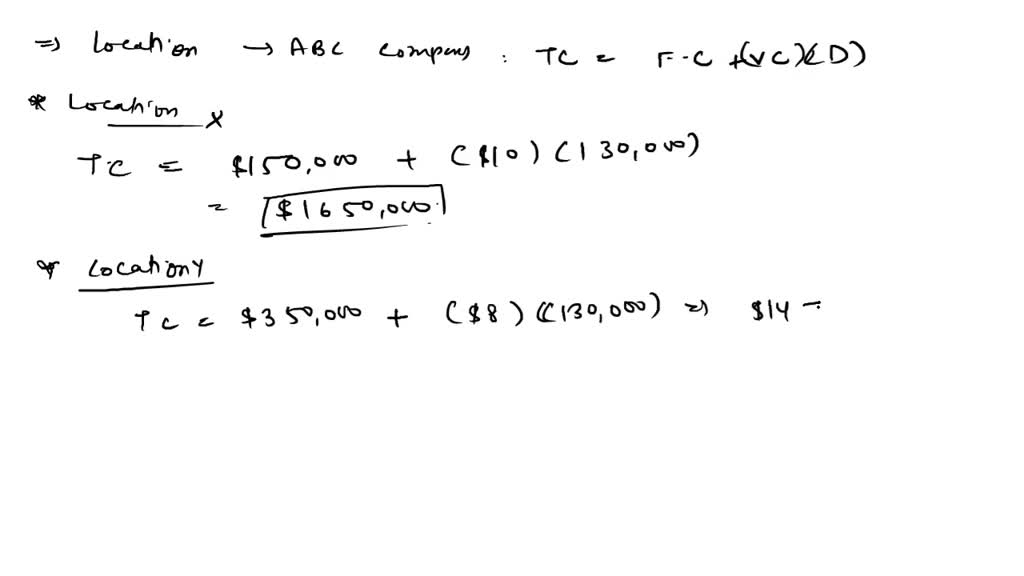 ⇒ Location → ABC Company : TC = F.C +(VC)(D)
* Location X
TC = $150,000 + ($10) (130,000)
= $1650,000
* Location Y
TC = $350,000 + ($8) (130,000) ⇒ $14